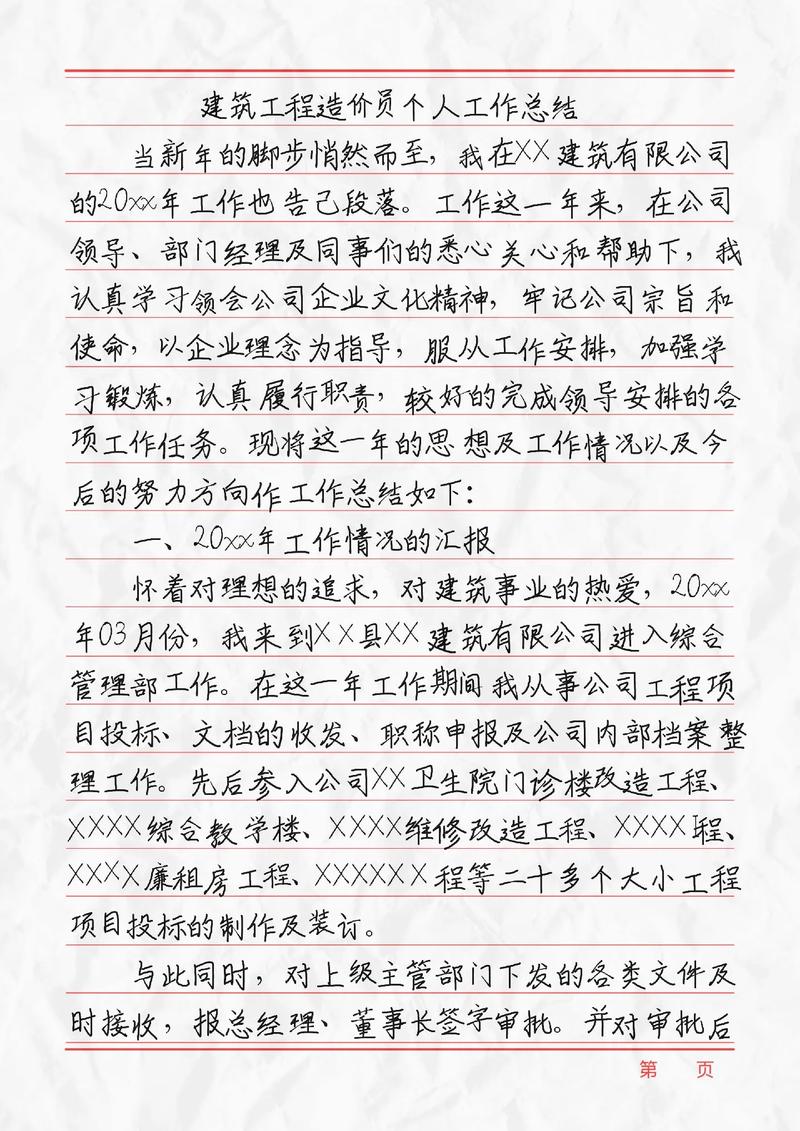 建筑工程造价员个人工作总结
当新年的脚步悄然而至，我在XX建筑有限公司
的20xx年工作也告己段落。工作这一年来，在公司
领导、部门经理及同事们的悉心关心和帮助下，我
认真学习领会公司企业文化精神，牢记公司宗旨和
使命，以企业理念为指导，服从工作安排，加强学
习锻炼，认真履行职责，较好的完成领导安排的各
项工作任务。现将这一年的思想及工作情况以及今
后的努力方向作工作总结如下：
一、20xx年工作情况的汇报
怀着对理想的追求，对建筑事业的热爱，20xx
年03月份，我来到XX县XX建筑有限公司进入综合
管理部工作。在这一年工作期间我从事公司工程项
目投标、文档的收发、职称申报及公司内部档案整
理工作。先后参入公司XX卫生院门诊楼改造工程、
XXXX综合教学楼、XXXX维修改造工程、XXXX工程、
XXXX廉租房工程、XXXXXX程等二十多个大小工程
项目投标的制作及装订。
与此同时，对上级主管部门下发的各类文件及
时接收，报总经理、董事长签字审批。并对审批后
第 页